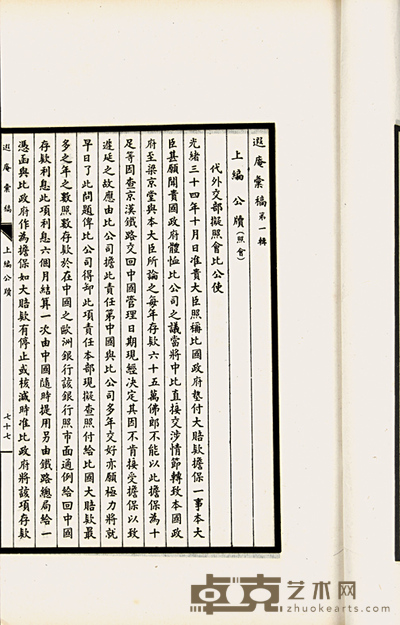 遐庵彙稿第一輯
上編 公牘(照會)
代外交部擬照會比公使
光緒三十四年十月日准貴大臣照稱比國政府墊付大賠款擔保一事本大
臣甚願聞貴國政府體恤比公司之議當將中比直接交涉情節轉致本國政
府至梁京堂與本大臣所論之每年存款六十五萬佛郎不能以此擔保為十
足等因查京漢鐵路交回中國管理日期現經決定其因不肯接受擔保以致
遲延之故應由比公司擔此責任第中國與比公司多年交好亦願極力將就
早日了此問題俾比公司得卸此項責任本部現擬查照付給比國大賠款最
多之年之數照數存款於在中國之歐洲銀行該銀行照市面通例給回中國
存款利息此項利息六個月結算一次由中國隨時提用另由鐵路總局給一
憑函與比政府作為擔保如大賠款有停止或核減時准比政府將該項存款
遐庵彙稿 上編公牘 七十七
卓克艺术网
zhuokearts.com